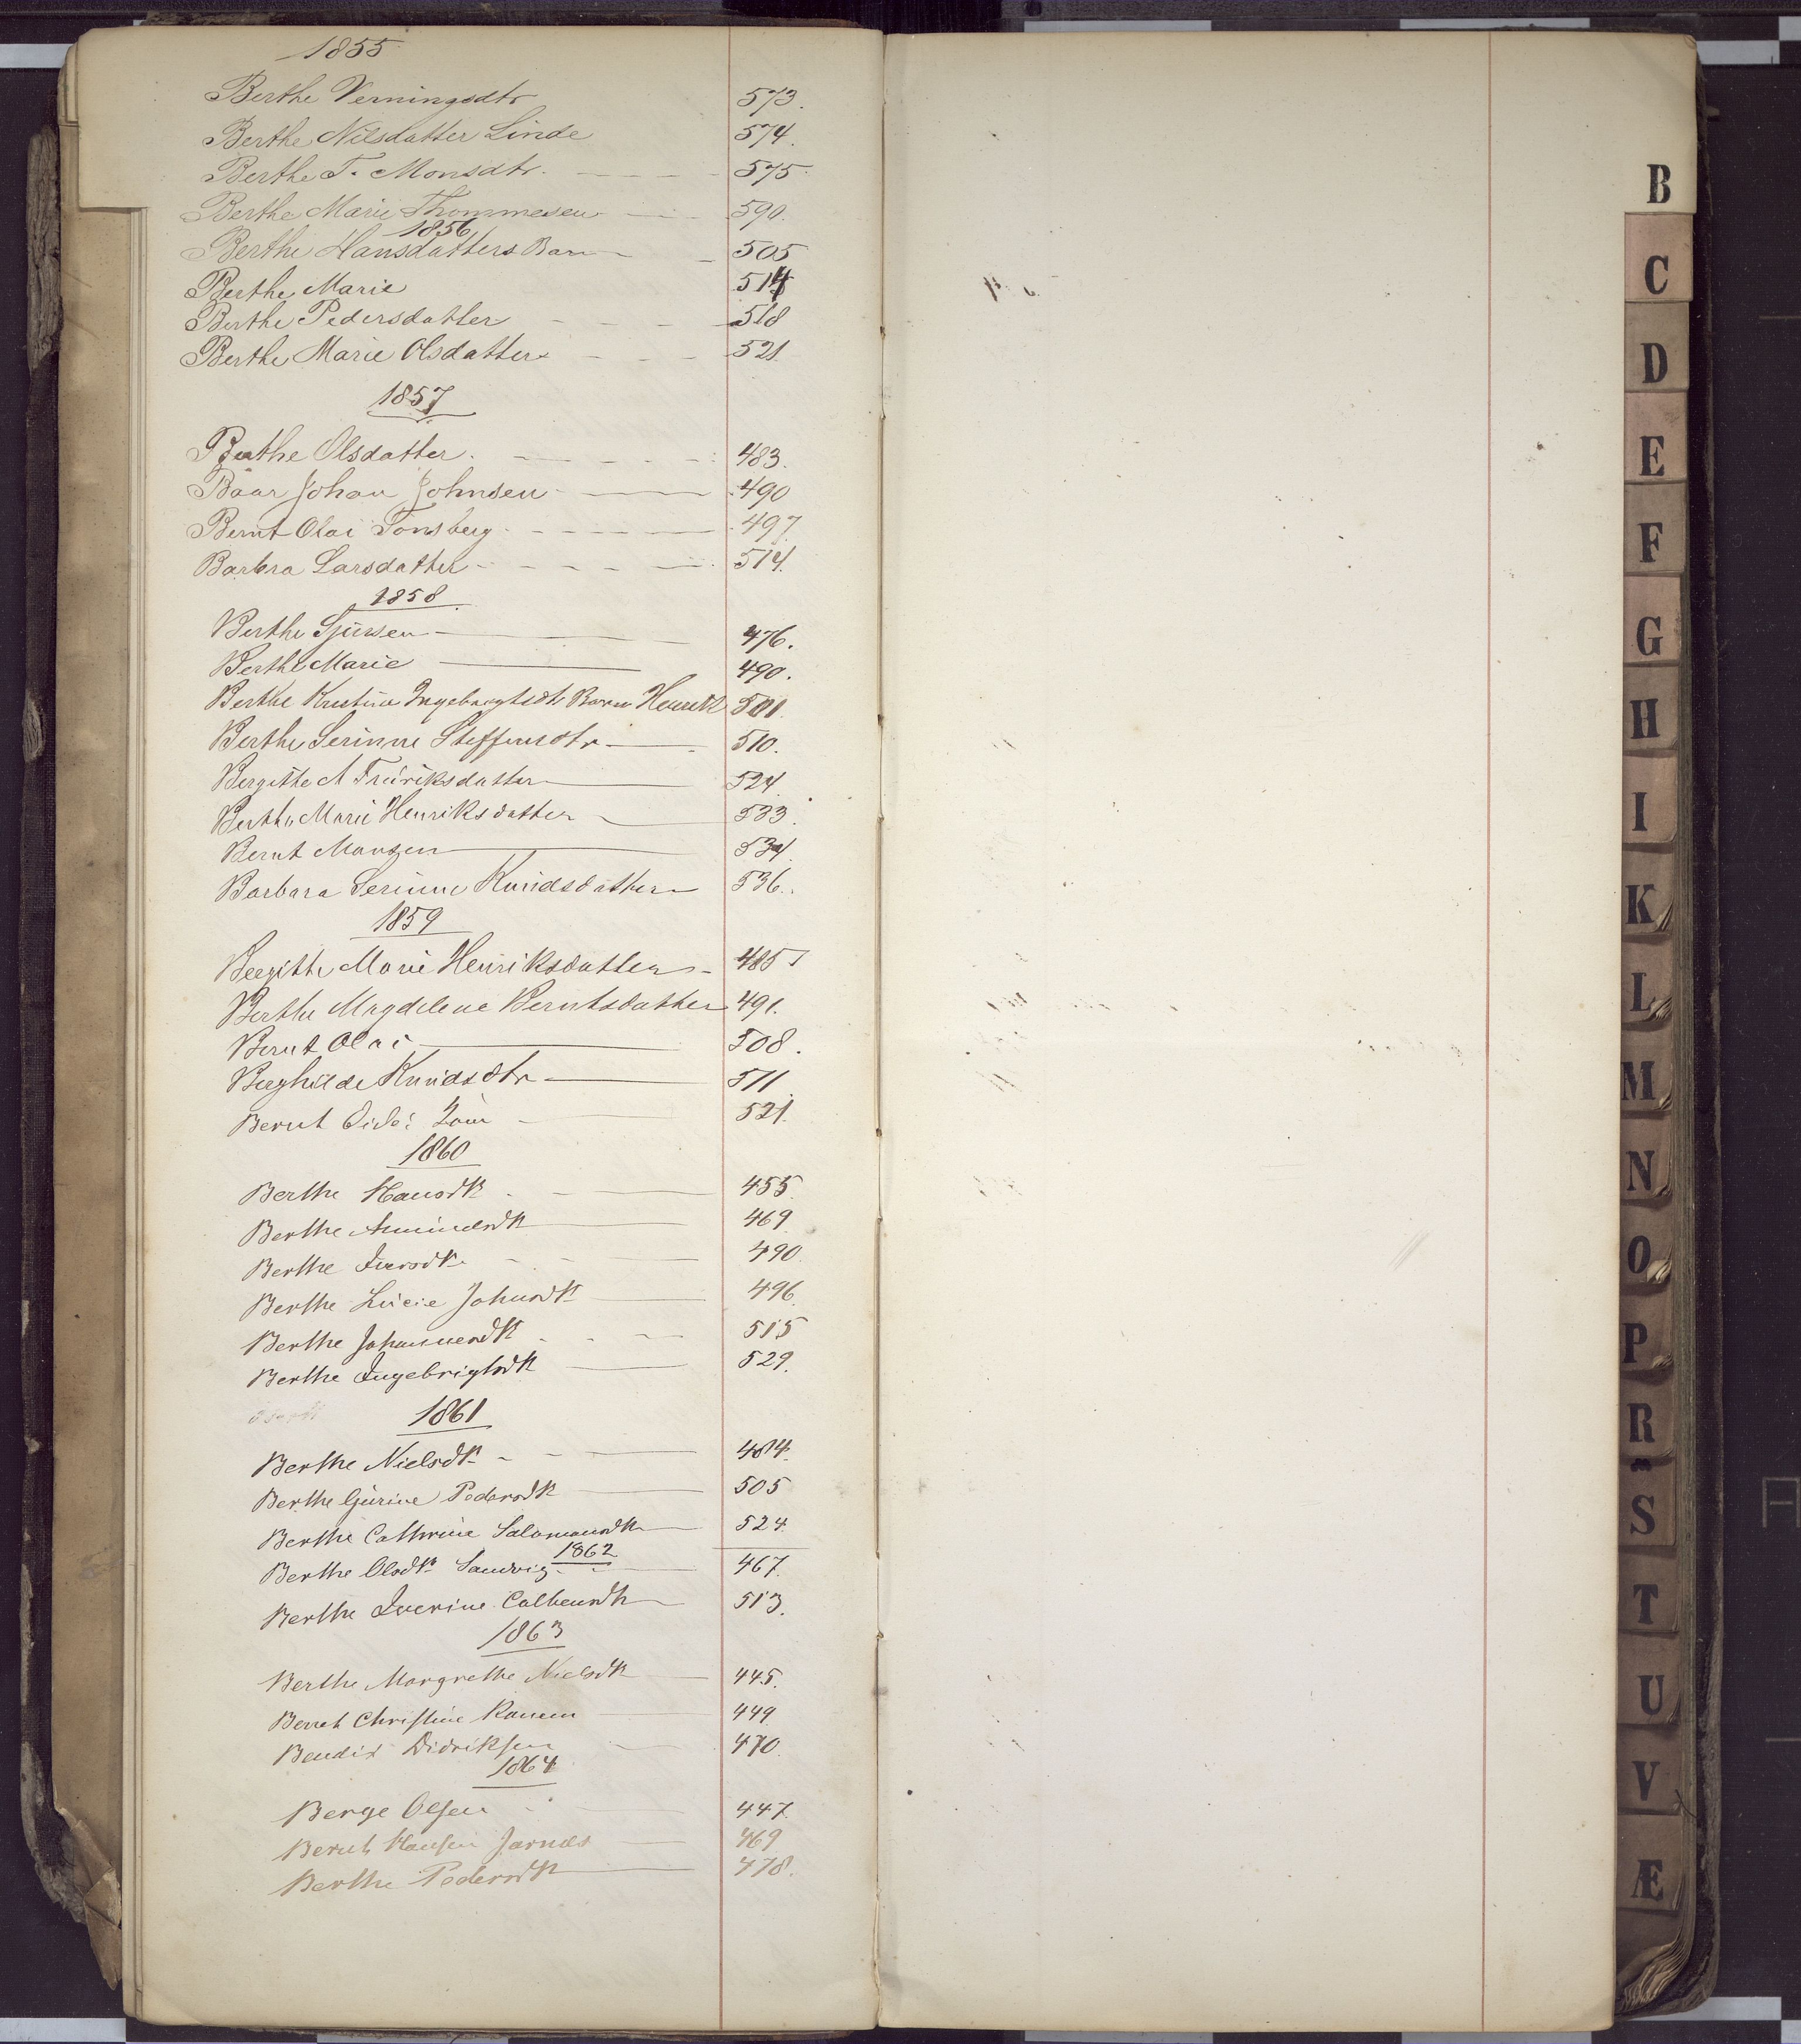 1855
Berthe Verningsdtr 573.
Berthe Nilsdatter Linde 574.
Berthe T. Monsdtr. 575.
Berthe Marie Thommesen 590.
1856
Berthe Hansdatters Barn 505
Berthe Marie 514
Berthe Pedersdatter 518
Berthe Marie Olsdatter 521.
1857
Berthe Olsdatter. 483.
Baar Johan Johnsen 490
Bernt Olai Tonsberg 497.
Barbra Larsdatter 514.
1858.
Berthe Sjursen 476.
Berthe Marie 490.
Berthe Kristine Ingebrigtsdtr Barn Henrik 501.
Berthe Serinne Steffensdtr 510.
Bergitte A Fredriksdatter 524.
Berthe Marie Henriksdatter 533.
Bernt Monsen 534.
Barbara Serinne Knudsdatter 536.
1859
Bergitte Marie Henriksdatter 485
Berthe Magdelene Berntsdatter 491.
Bernt Olai 508.
Berghilde Knudsdtr 511
Bernt 521.
1860
Berthe Hansdtr 455.
Berthe Amundsdtr 469
Berthe Iversdtr. 490.
Berthe Lucie Johnsdtr 496.
Berthe Johannesdtr 515
Berthe Ingebrigtsdtr 529.
1861
Berthe Nielsdtr 484.
Berthe Gurine Pedersdtr 505
Berthe Cathrine Salomonsdtr 524.
1862
Berthe Olsdtr Sandvig 467.
Berthe Iverine Colbensdtr 513.
1863
Berthe Margrethe Nielsdtr 445.
Berret Christine Hansen 449
Bendix Didriksen 470.
1864
Berge Olsen 447.
Bernt Hansen Jarnæs 469
Berthe Pedersdtr 478.
B
C
D
E
F
G
H
I
K
L
M
N
O
P
R
S
T
U
V
Æ